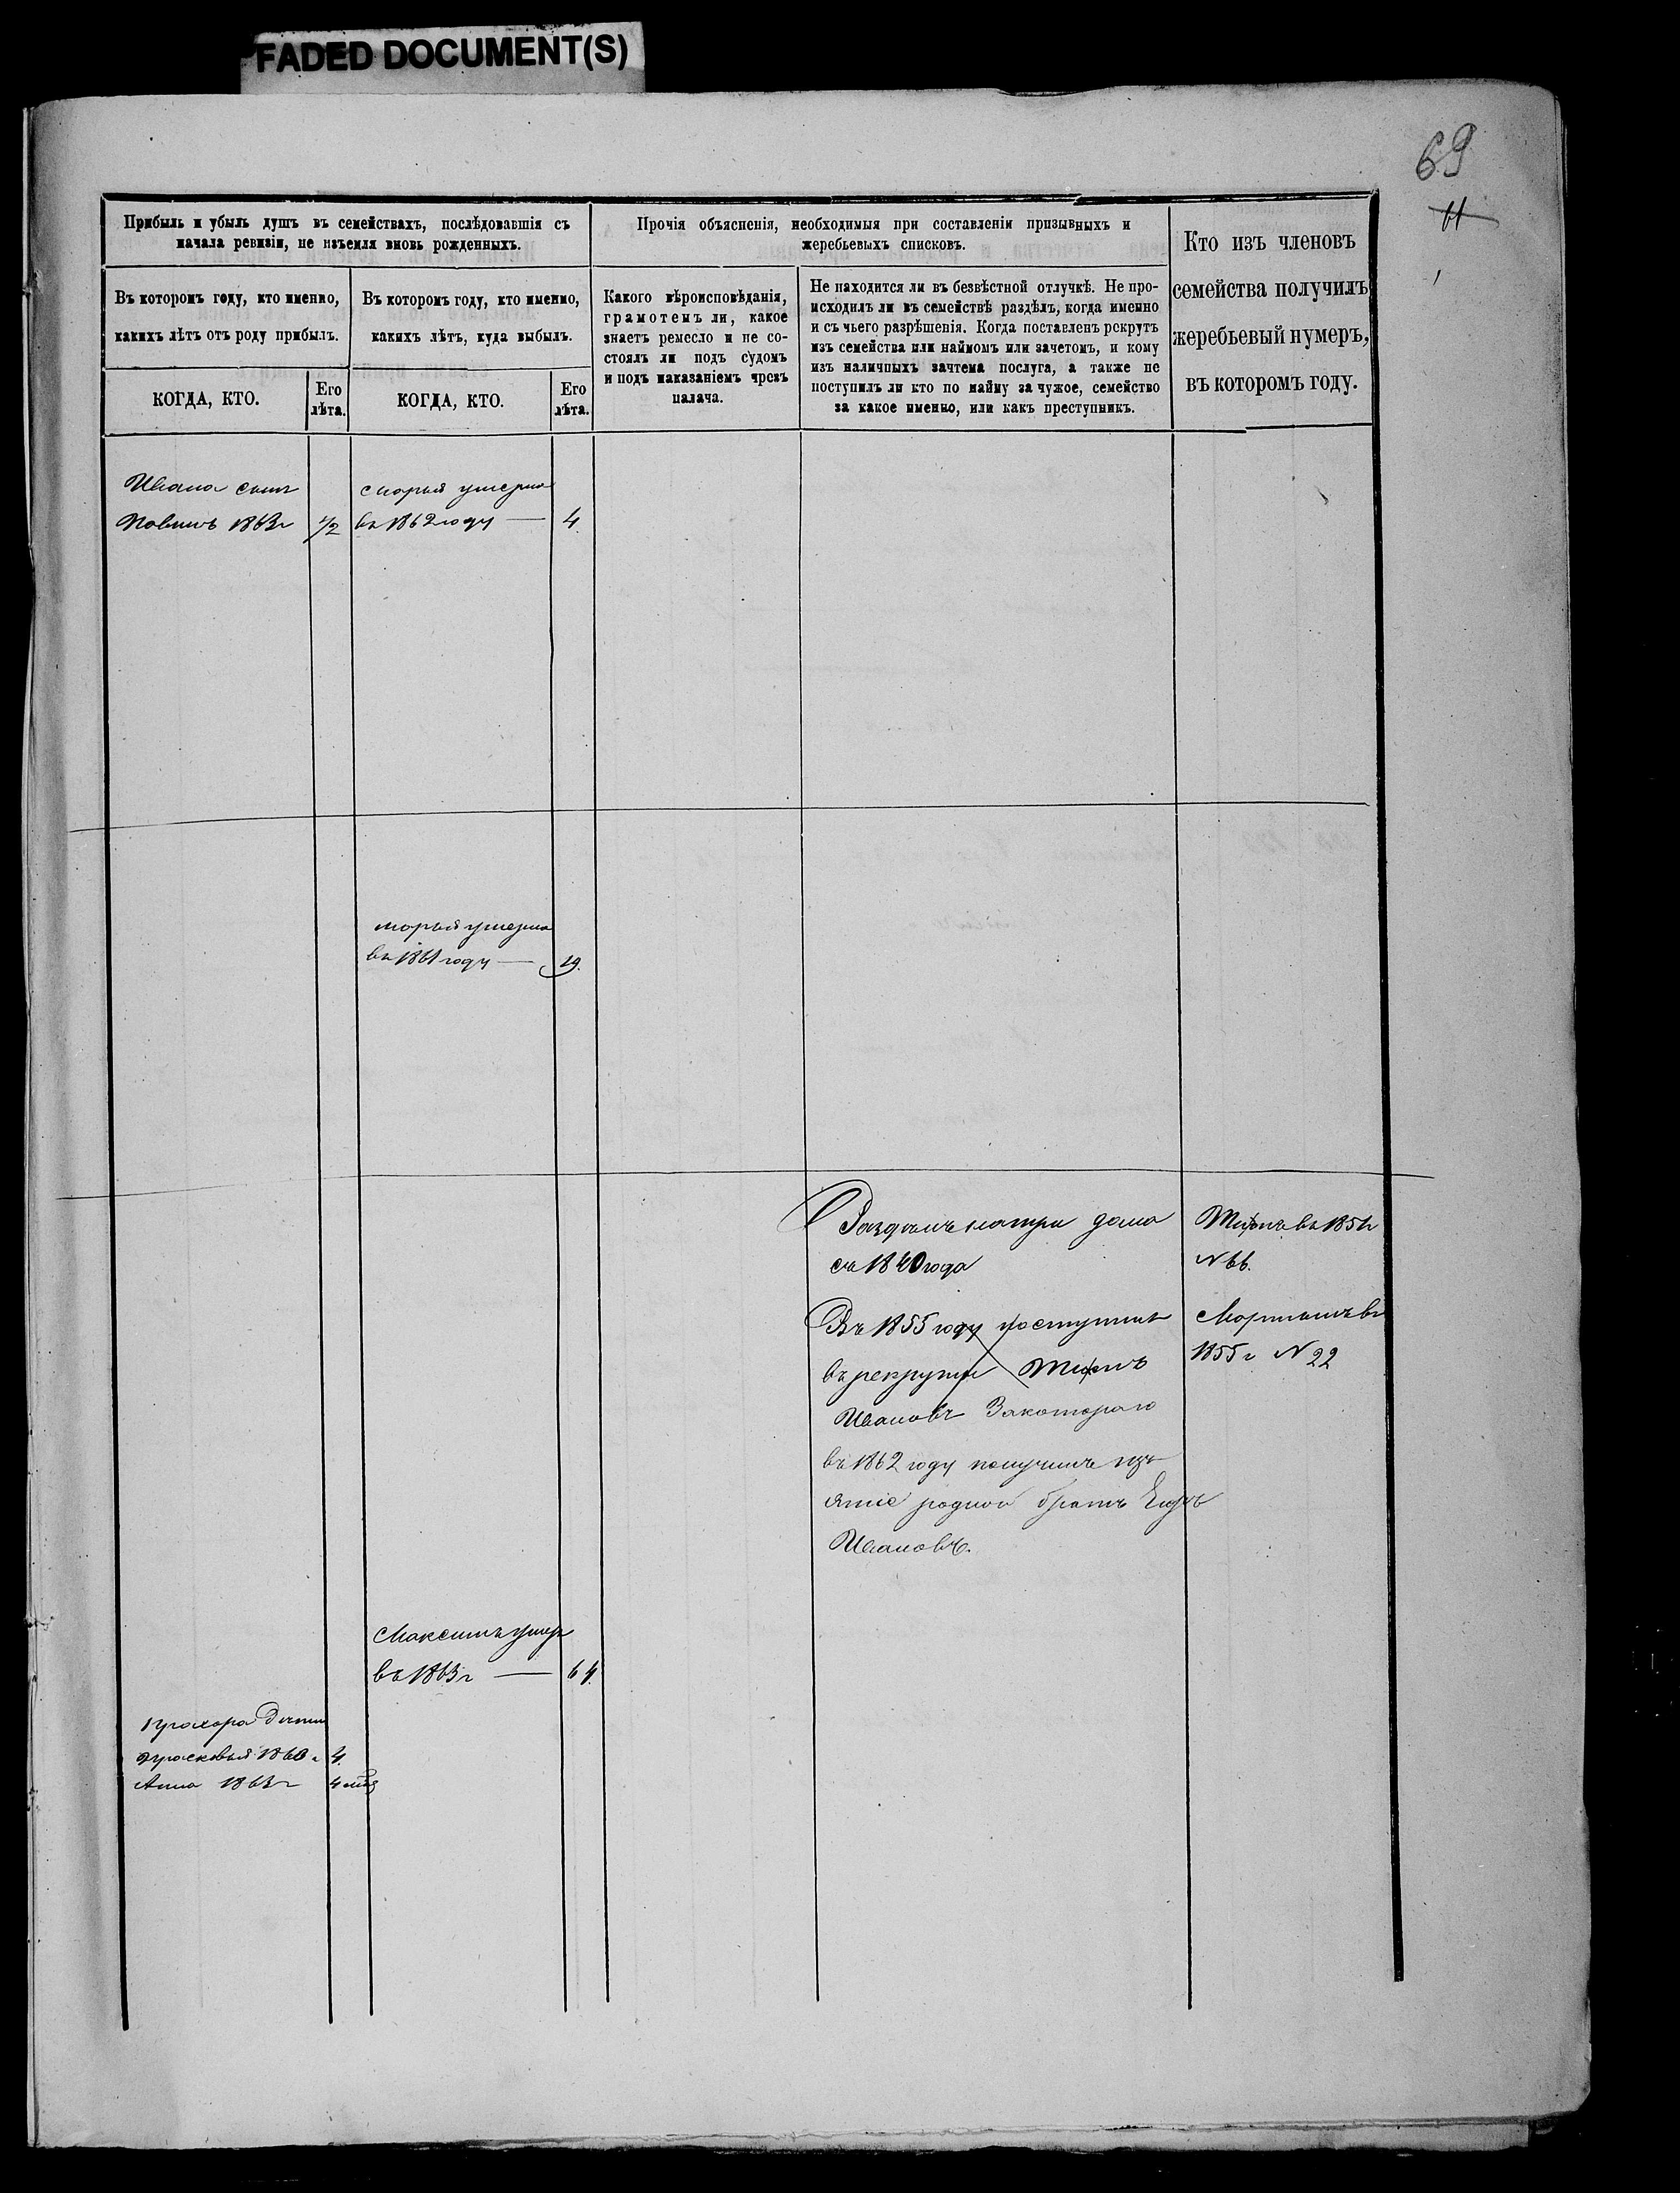 FADED DOCUMENT(S)
69
11
Прибыль и убыль душъ въ семействахъ, послѣдовавшія съ
начала ревизіи, не изъемля вновь рожденныхъ.
Въ которомъ году, кто именно,
какихъ лѣтъ отъ роду прибылъ.
КОГДА, КТО.
Его
лѣта.
Въ которомъ году, кто именно,
какихъ лѣтъ, куда выбылъ.
КОГДА, КТО.
Его
лѣта.
Прочія объясненія, необходимыя при составленіи призывныхъ и
жеребьевыхъ списковъ.
Какого вѣроисповѣданія,
грамотенъ ли, какое
знаетъ ремесло и не со-
стоялъ ли подъ судомъ
и подъ наказаніемъ чрезъ
палача.
Не находится ли въ безвѣстной отлучкѣ. Не про-
исходилъ ли въ семействѣ раздѣлъ, когда именно
и съ чьего разрѣшенія. Когда поставленъ рекрутъ
изъ семейства или наймомъ или зачетомъ, и кому
изъ наличныхъ зачтена послуга, а также не
поступилъ ли кто по найму за чужое, семейство
за какое именно, или какъ преступникъ.
Кто изъ членовъ
семейства получилъ
жеребьевый нумеръ,
въ которомъ году.
Ивана сынъ
1863г 1/2
Марья умерла
въ 1862 году — 4.
Марья умерла
въ 1861 году — 19.
на три дома
съ 1840 года
Въ 1855 году поступилъ
въ рекруты
Ивановъ За котораго
въ 1862 году получилъ
родной братъ
Ивановъ.
въ 1851г
N 66.
Мартынъ въ
1855г N 22
Максимъ умеръ
въ 1863г — 64.
Прохора Дочти
Прасковья 1860г 4.
Анна 1863г 4 мѣ